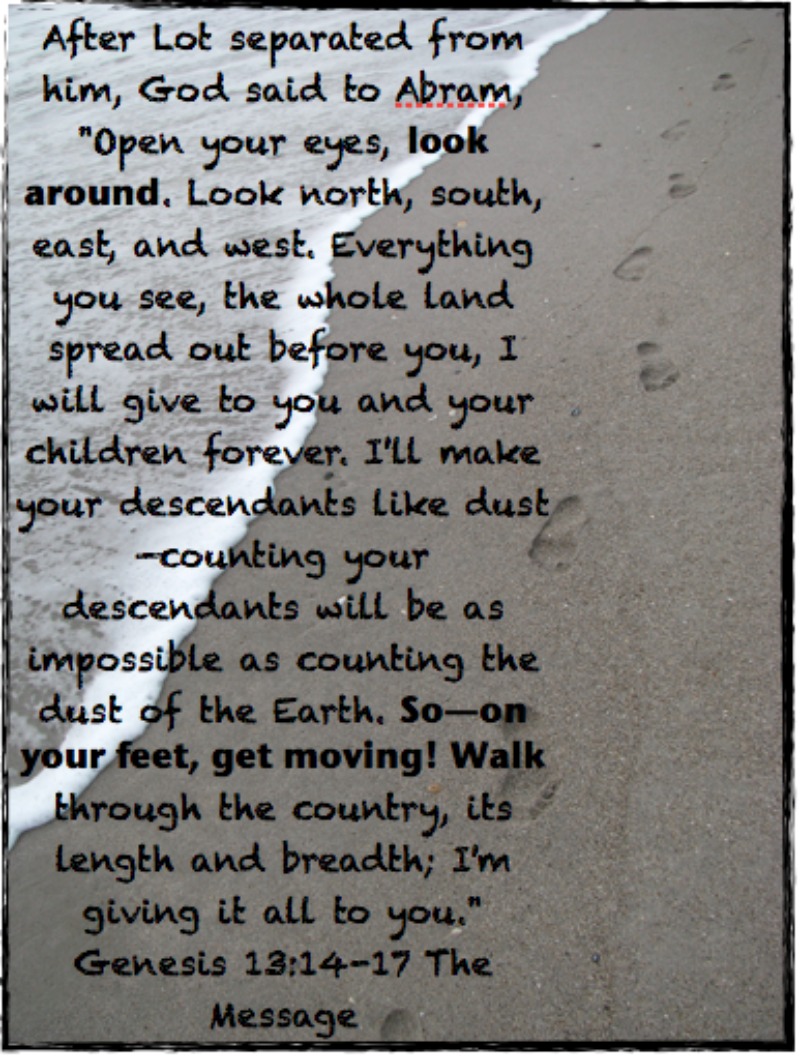 After Lot separated from
him, God said to Abram,
"Open your eyes, look
around. Look north, south,
east, and west. Everything
you see, the whole land
spread out before you, I
will give to you and your
children forever. I'll make
your descendants like dust
—counting your
descendants will be as
impossible as counting the
dust of the Earth. So—on
your feet, get moving! Walk
through the country, its
length and breadth; I'm
giving it all to you."
Genesis 13:14-17 The
Message